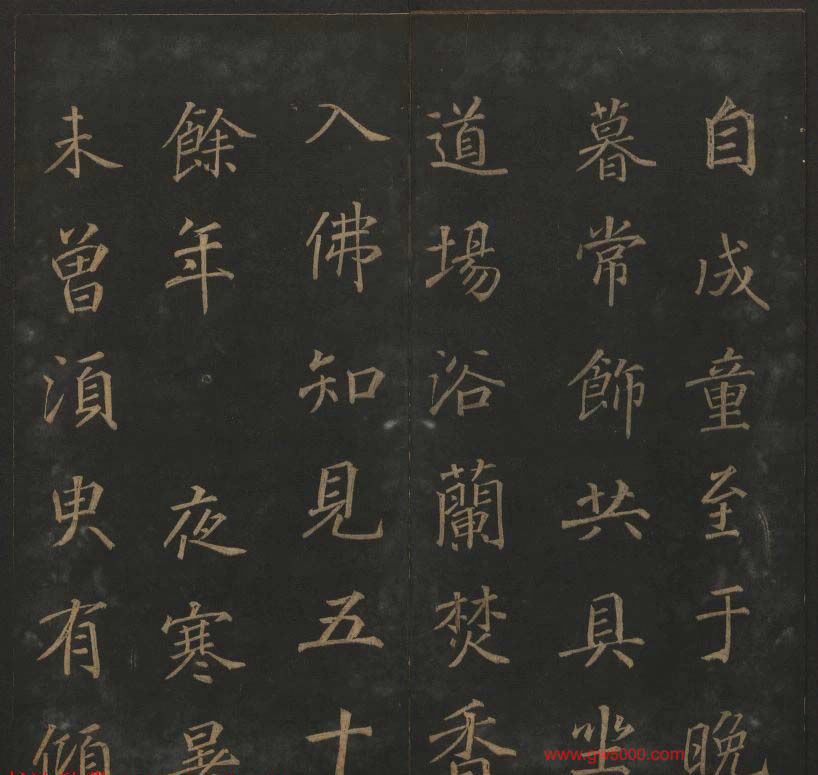 自成童至于晚
暮常飾共具坐
道場浴蘭焚香
入佛知見五十
餘年 夜寒暑
未曾須臾有傾
www.gw5000.com